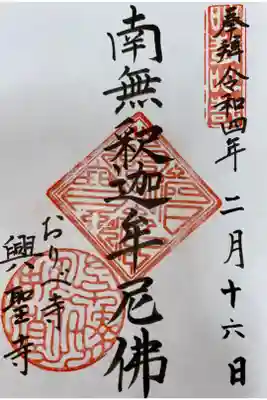 奉拜 令和四年 二月十六日
南無釈迦牟尼佛
おりべ寺
興聖寺